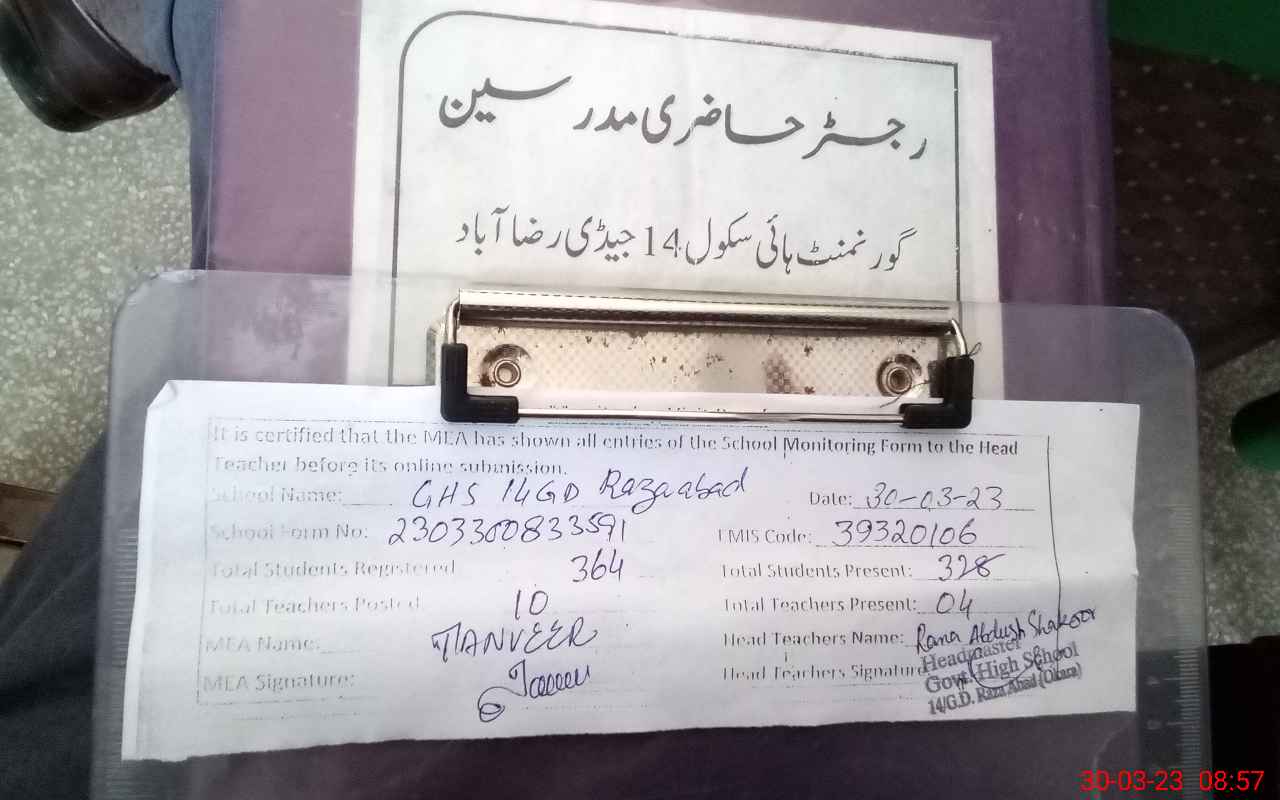 رجسٹر حاضری مدرسین
گورنمنٹ ہائی سکول 14 جیڈی رضا آباد
It is certified that the MEA has shown all entries of the School Monitoring Form to the Head
Teacher before its online submission.
School Name: GHS 14GD Razaabad Date: 30-03-23
School Form No: 2303300833591 EMIS Code: 39320106
Total Students Registered 364 Total Students Present: 328
Total Teachers Posted 10 Total Teachers Present: 04
MEA Name: TANVEER Head Teachers Name: Rana Abdush Shakoor
MEA Signature: Head Teachers Signature
Headmaster
Govt. High School
14/G.D. Raza Abad (Okara)
30-03-23 08:57